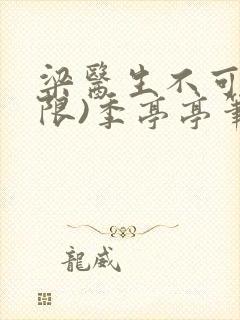 梁醫生不可
限)季亭亭筆
龍威